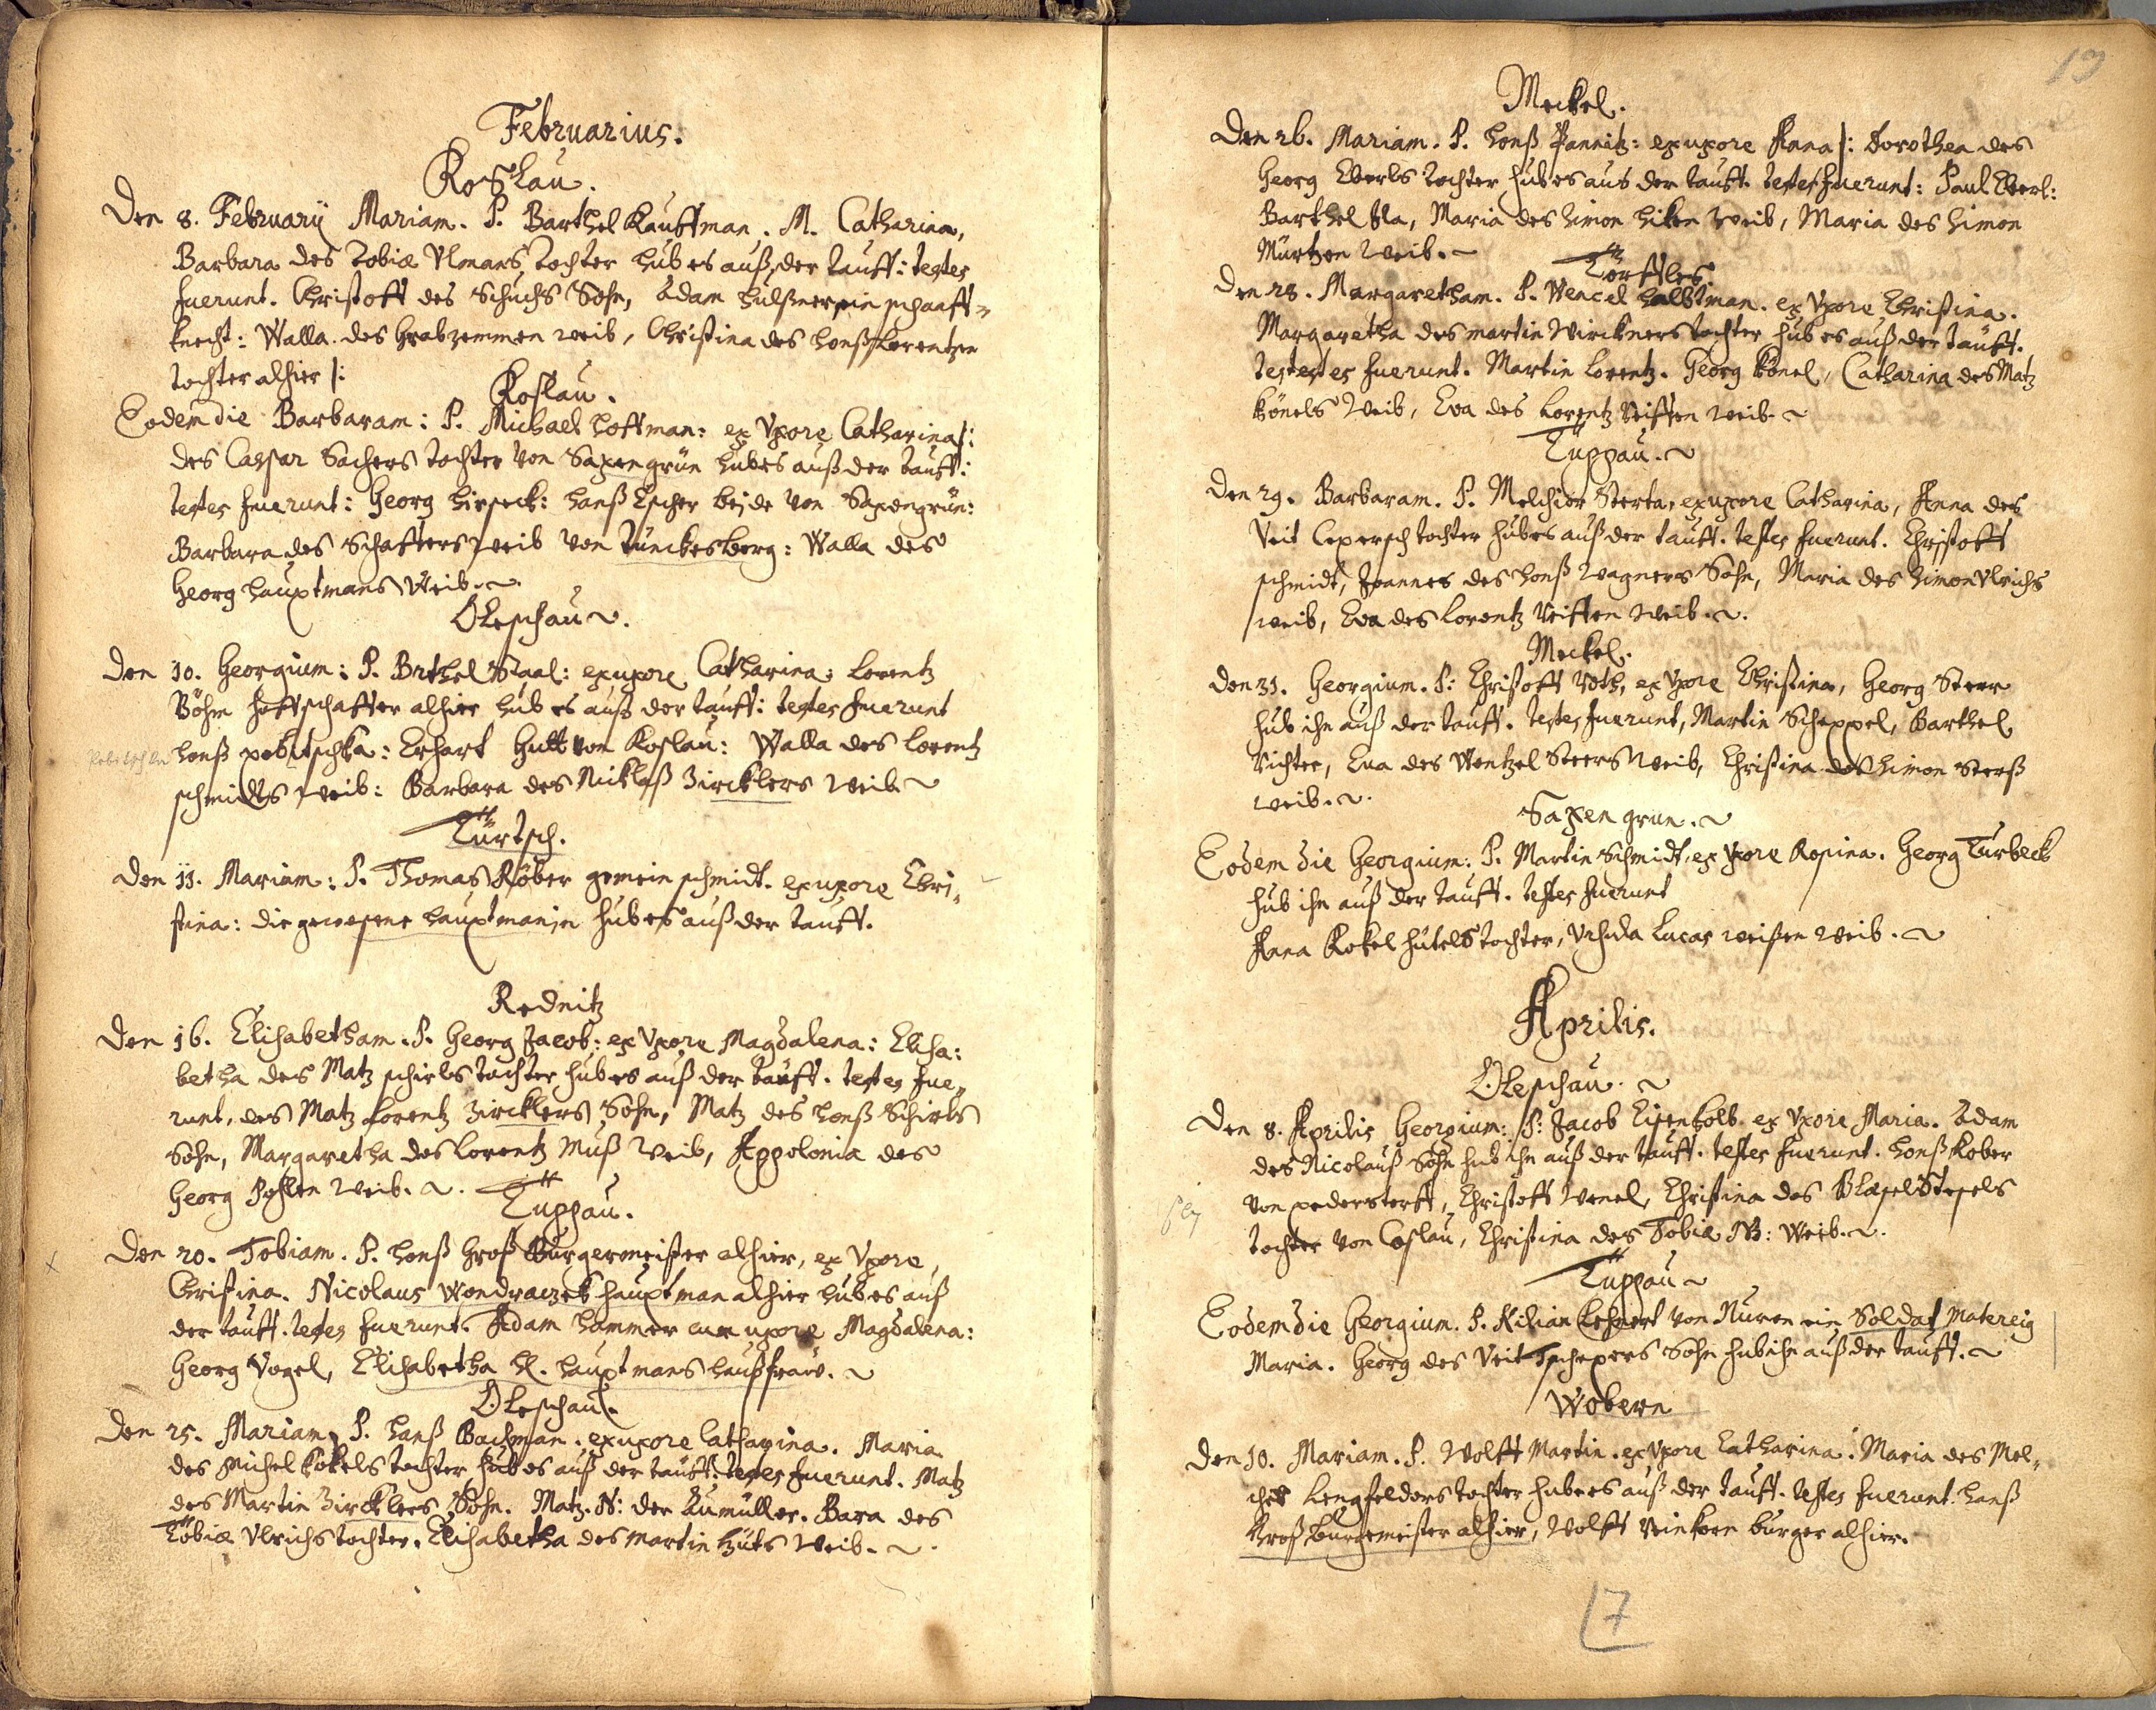 Februarius.
Koslau.
Den 8. February Mariam. P. Barthel Kauffman. M. Catharina,
Barbara des Tobiæ Vlmans Tochter hub es auß der Tauff: testes
fuerunt. Christoff des Schuchs Sohn, Adam hulßner ein schaaff-
knecht: Walla des weib, Christina des Honß Lorentzen
tochter alhier /:
Koslau.
Eodem die Barbaram: P. Michael Hoffman: ex Vxore Catharina /:
des Caspar Sachers tochter von Saxengrün hub es auß der tauff:
testes fuerunt: Georg Hanß Escher beide von Saxengrün:
Barbara des Schaffers weib von Tünckesberg: Walla des
Georg Hauptmans Weib.
Oleschau.
Den 10. Georgium: P. Brthel Staal: ex uxore Catharina: Lorentz
Böhm hoffschaffer alhier hub es auß der tauff: testes fuerunt
Honß pobitschka: Erhart Gutt von Koslau: Walla des Lorentz
schmidts weib: Barbara des Nicklaß Zircklers weib
Türtsch.
Den 11. Mariam: P. Thomas Röber gemein schmidt. ex uxore Chri-
stina: die gewesene hauptmanin hub es auß der tauff.
Rednitz
Den 16. Elisabetham. P. Georg Jacob: ex Vxore Magdalena: Elisa:
betha des Matz schirls tochter hub es auß der tauff. testes fue-
runt, des Matz Lorentz Zircklers Sohn, Matz des Honß Schirls
Sohn, Margaretha des Lorentz Muß Weib, Appolonia des
Georg Pohlen Weib.
Tuppau.
Den 20. Tobiam. P. Honß Groß Burgermeister alhier, ex Vxore
Christina. Nicolaus Wondraczek hauptman alhier hub es auß
der tauff. testes fuerunt. Adam Hammer cum uxore Magdalena:
Georg Vogel, Elisabetha H. hauptmans haußfraw.
Oleschau.
Den 25. Mariam P. Hanß Bachman. ex uxore Catharina. Maria
des Michel Kokels tochter hub es auß der tauff: testes fuerunt. Matz
des Martin Zircklers Sohn. Matz. N: der Aumüller. Bara des
Tobiæ Vlrichs tochter. Elisabetha des Martin Weib.
13
Meckel.
Den 26. Mariam. P. Honß Pannitz: ex uxore Anna /: Dorothea des
Georg Eberls tochter hub es aus der tauff. testes fuerunt: Paul Eberl:
Barthel Ila, Maria des Simon Weib, Maria des Simon
Mürtzen Weib.
Dörfles.
Den 28. Margaretham. P. Wencel Halbtman. ex Vxore Christina.
Margaretha des Martin Wirckners tochter hub es auß der tauff.
testestes fuerunt. Martin Lorentz. Georg Könel, Catharina des Matz
Könels Weib, Eva des Lorentz Seiffen weib.
Tuppau.
Den 29. Barbaram. P. Melchior Sterta, ex uxore Catharina, Anna des
Veit tochter hub es auß der tauff. testes fuerunt. Christoff
schmidt, Joannes des Honß Wagners Sohn, Maria des Simon Vlrichs
weib, Eva des Lorentz Seiffen Weib.
Meckel.
Den 31. Georgium. P: Christoff Roth, ex Vxore Christina, Georg Steer
hub ihn auß der tauff. testes fuerunt, Martin Scheppel, Barthel
Richter, Eva des Wentzel Steers Weib, Christina des Simon Steerß
weib.
Saxen grun.
Eodem die Georgium: P. Martin Schmidt, ex Vxore Rosina. Georg Türbeck
hub ihn auß der tauff. testes fuerunt
Anna Kokel hütels tochter, Vrsula Lucas weisen Weib.
Aprilis.
Oleschau.
Den 8. Aprilis Georgium: P: Jacob Eisenkolb ex Vxore Maria. Adam
des Nicolauß Sohn hub ihn auß der tauff. testes fuerunt. Honß Kober
von pedersterff, Christoff Wenel, Christina des Blasel Stefels
tochter von Coslau, Christina des Tobiæ NB: Weib.
Tuppau
Eodem die Georgium. P. Kilian Lehnert von Nuren ein Soldat Matereig
Maria. Georg des Veit Tschepers Sohn hub ihn auß der tauff.
Wobern
Den 10. Mariam. P. Wolff Martin. ex Vxore Catharina. Maria des Mel-
cher Lengfelders tochter hub es auß der tauff. testes fuerunt. Hanß
Groß burgemeister alhier, Wolff Weinkorn burger alhier.
17